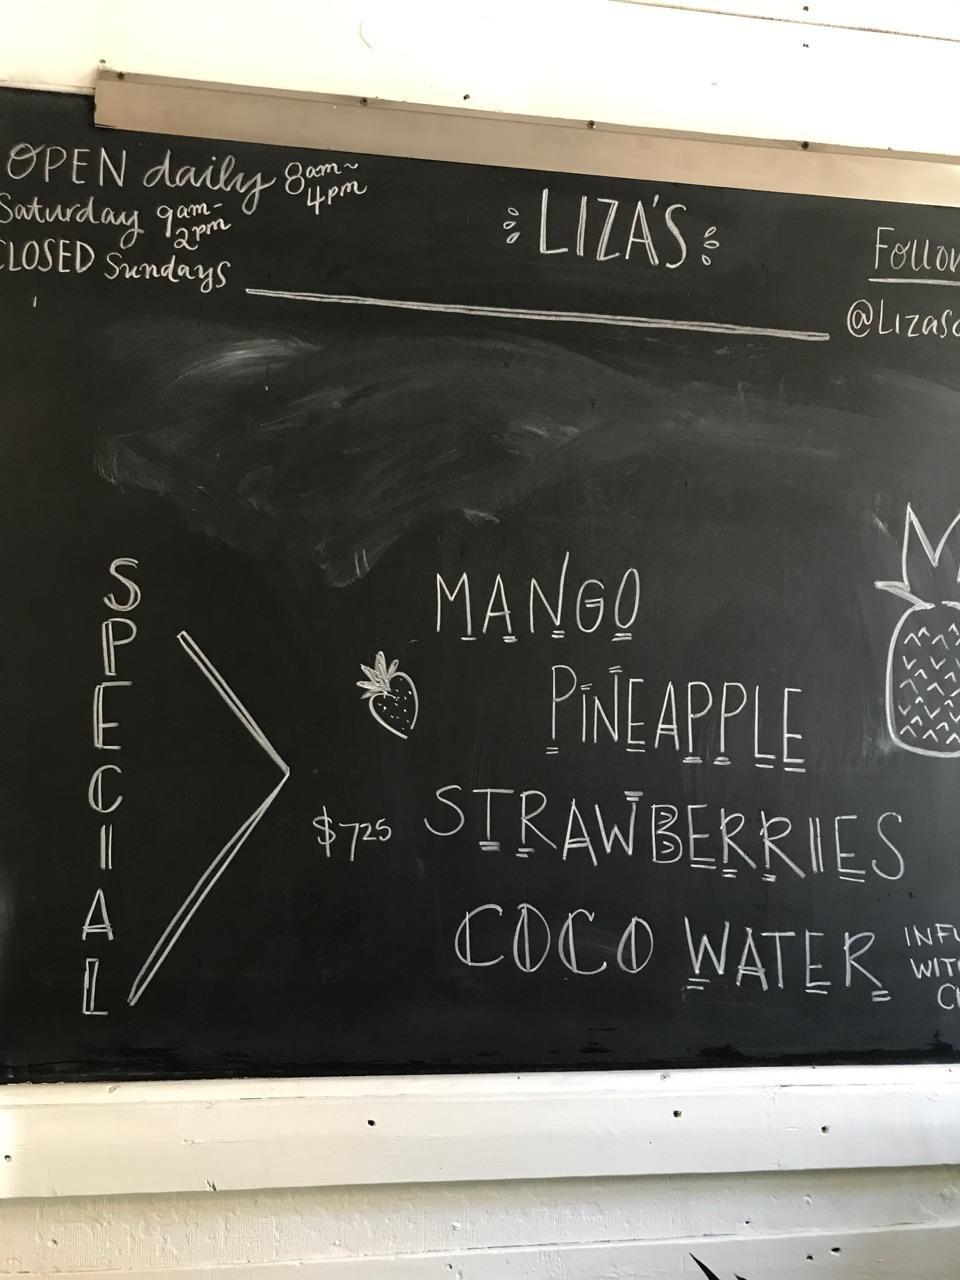 OPEN daily 8am~ 4pm
Saturday 9am- 2pm
CLOSED Sundays
LIZA'S
SPECIAL
MANGO
PINEAPPLE
$7 25 STRAWBERRIES
COCO WATER